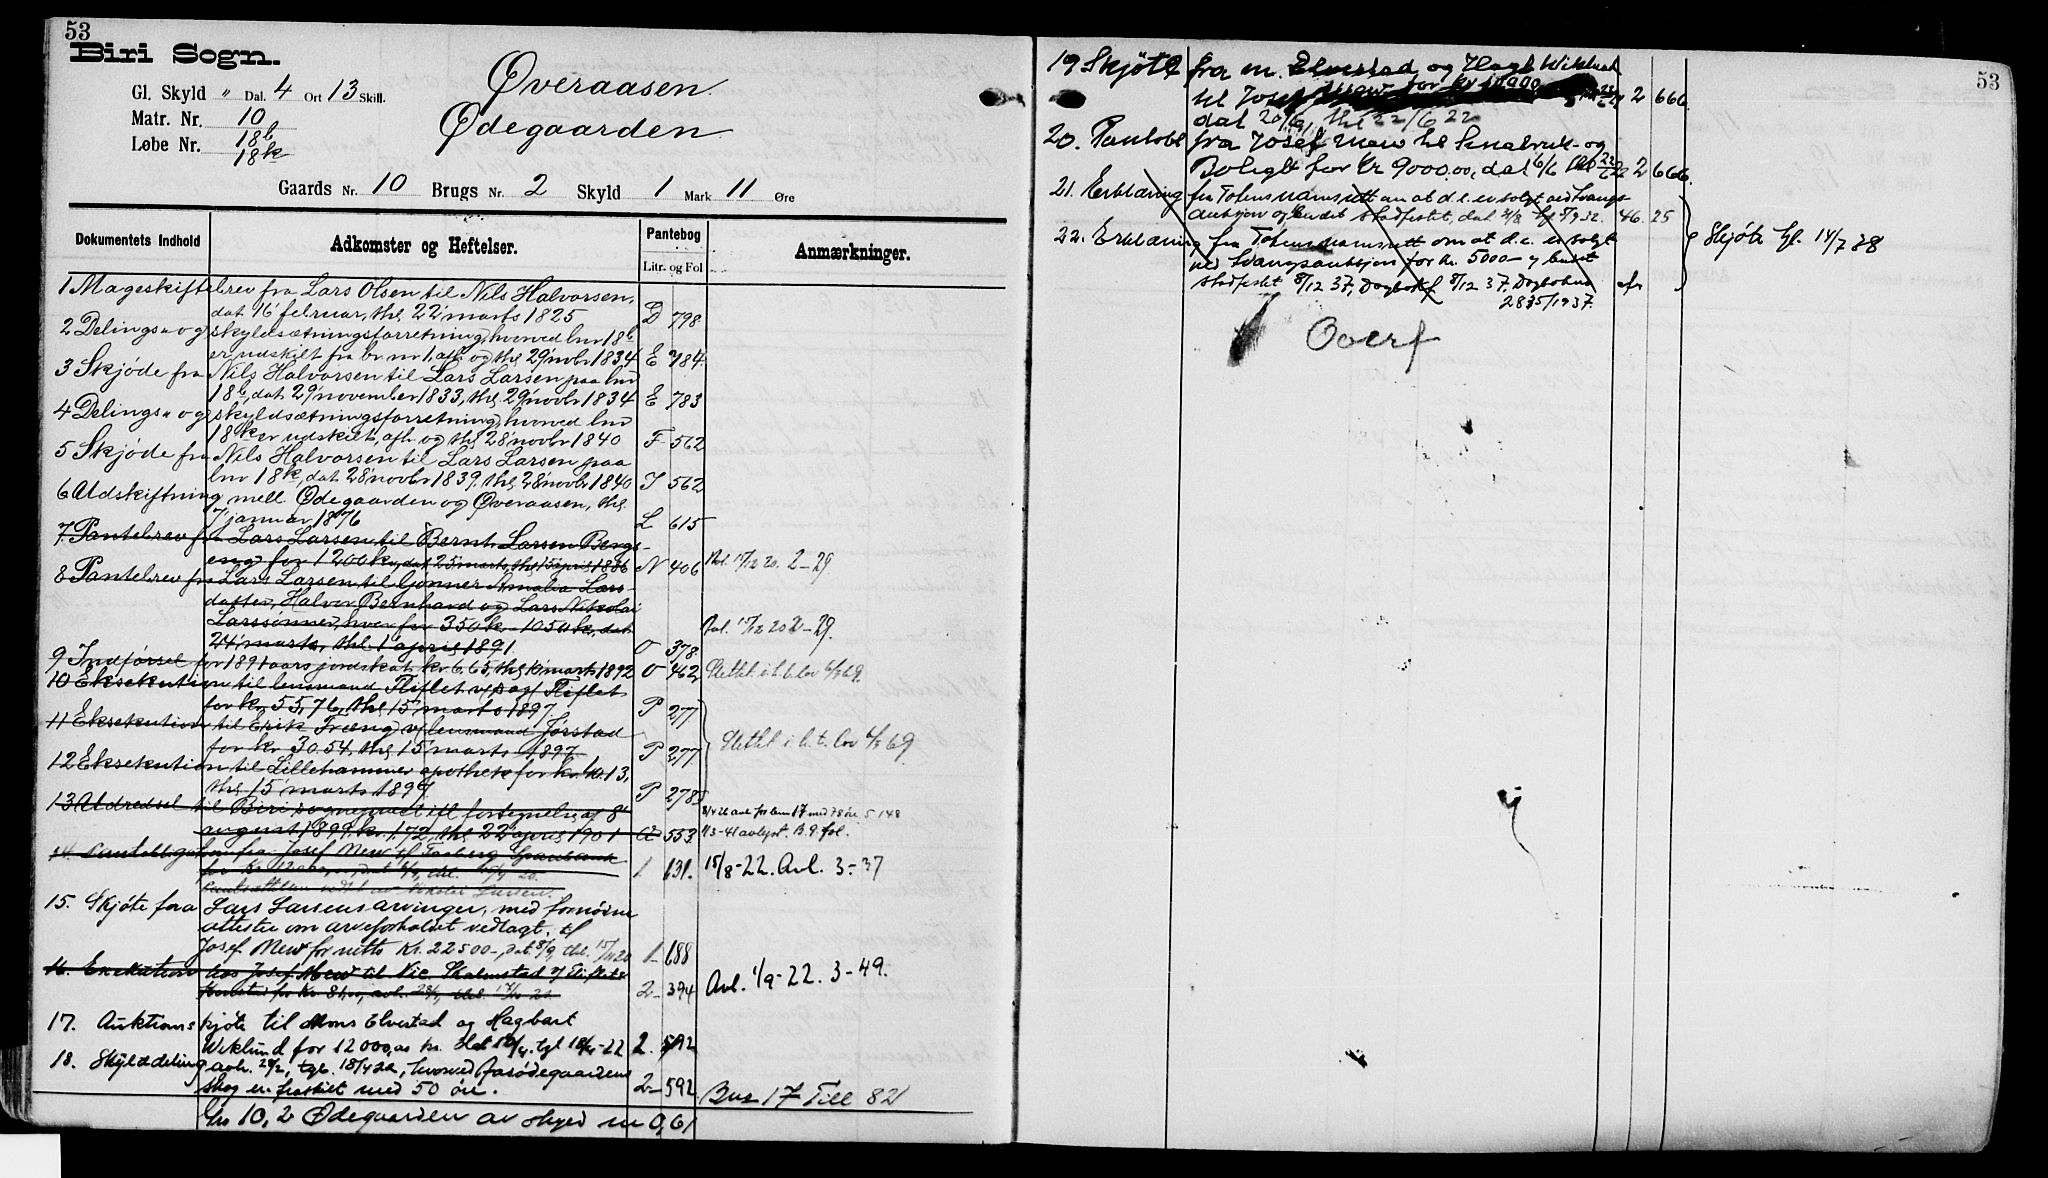 53
Biri Sogn.
Gl. Skyld " Dal. 4 Ort 13 Skill.
Øveraasen
Matr. Nr. 10
Ødegaarden
Løbe Nr. 18b
18k
Gaards Nr. 10 Brugs Nr. 2 Skyld 1 Mark 11 Øre
Dokumentets Indhold Adkomster og Heftelser. Pantebog Litr. og Fol Anmærkninger.
1 Mageskiftebrev fra Lars Olsen til Nils Halvorsen,
dat 16' februar, thl 22' marts 1825 D 798
2 Delings- og skyldsætningsforretning, hvorved lnr 18b
er udskilt fra br nr 1, afh og thl 29' novbr 1834 E 784
3 Skjøde fra Nils Halvorsen til Lars Larsen paa lnr
18b, dat 29' november 1833, thl 29' novbr 1834 E 783
4 Delings- og skyldsætningsforretning, hvorved lnr
18k er udskilt, afh og thl 28' novbr 1840 F 562
5 Skjøde fra Nils Halvorsen til Lars Larsen paa
lnr 18k, dat 28' novbr 1839, thl 28' novbr 1840 F 562
6 Udskiftning mell Ødegaarden og Øveraasen, thl
7' januar 1876 L 615
7 Pantebrev fra Lars Larsen til Bernt Larsen Bergs-
eng for 1200 kr, dat 25 marts, thl 15 april 1886 N 406 Avl. 17/12 20. 2-29
8 Pantebrev fra Lars Larsen til Gønner Amalia Lars-
datter, Halvor Bernhard og Lars Nikolai
Larssønner, hver for 350 kr - 1050 kr, dat
24' marts, thl 1' april 1891 O 378 Avl. 17/12 20 2-29.
9 Indførsel for 1891 aars jordskat kr 6.65, thl marts 1892 O 462 Slettet i h t lov 6/3 69.
10 Eksekution til lensmand Fliflet v/ Fliflet
for kr 55,76, thl 15' marts 1897 P 277
11 Eksekution til Erik Fræng v/ lensmand Jørstad
for kr 30.54, thl 15' marts 1897 P 277 Slettet i h. t. lov 6/3 69.
12 Eksekution til Lillehammer apothek for kr 10.13,
thl 15' marts 1897 P 278
13 Udredsel til Biri sogneraad ifl fortegnelse af 8'
august 1899 kr 1.72, thl 22' april 1901 553 1/3-41 avlyst. B.9. fol.
14. Pantobligation fra Josef Mew til Faaberg Sparebank
1 631. 15/8-22. Avl. 3-37
15. Skjøte fra Lars Larsens arvinger, med fornødne
attester om arveforholdet vedlagt, til
Josef Mew for netto Kr. 22500-, dat 8/9, thl. 15/11 20 1- 688
16. Exekution hos Josef Mew til Nic. Skalmstad v/ Fliflet
2- 394 Avl. 1/9-22. 3-49.
17. Auktionsskjøte til Mons Elvestad og Hagbart
Wiklund for 12000,00 kr. dat 10/4. tgl 18/4-22 2. 592
18. Skylddeling avh. 28/2, tgl. 18/4 22, hvorved Ødegaardens
skog er fraskilt med 50 øre. 2- 592 Bnr 17 Till 82
Gr 10, 2 Ødegaarden av skyld m 0,61
53
19 Skjøte fra M. Elvestad og Hagb. Wiklund
til Josef Mew for kr 10000 2 666.
dat 20/6, thl 22/6 22
20. Pantobl fra Josef Mew til Småbruk- og
Boligb for kr 9000,00, dat 6/6 thl 22/6 22 2 666.
21. Erklæring fra Totens namsrett om at d. e. er solgt ved tvangs-
auksjon og budet stadfestet, dat 31/8 tgl 5/9 32. 46 25
22. Erklæring fra Totens namsrett om at d. e. er solgt
ved tvangsauksjon for kr. 5000- og budet
stadfestet 8/12 37, Dagbokf 8/12 37. Dagboknr
2835/1937.
Skjøte tgl. 14/7 38
Overf